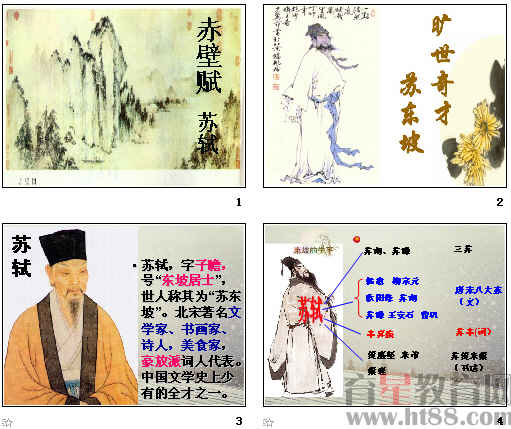 赤壁赋
苏轼
1
旷世奇才
苏东坡
2
苏轼
苏轼，字子瞻，
号“东坡居士”，
世人称其为“苏东
坡”。北宋著名文
学家、书画家、
诗人，美食家，
豪放派词人代表。
中国文学史上少
有的全才之一。
3
苏轼
苏洵、苏辙 三苏
韩愈 柳宗元
欧阳修 苏洵
苏辙 王安石 曾巩
唐宋八大家
（文）
辛弃疾 苏辛(词)
黄庭坚 米芾
蔡襄
苏黄米蔡
（书法）
4
育星教育网
www.ht88.com